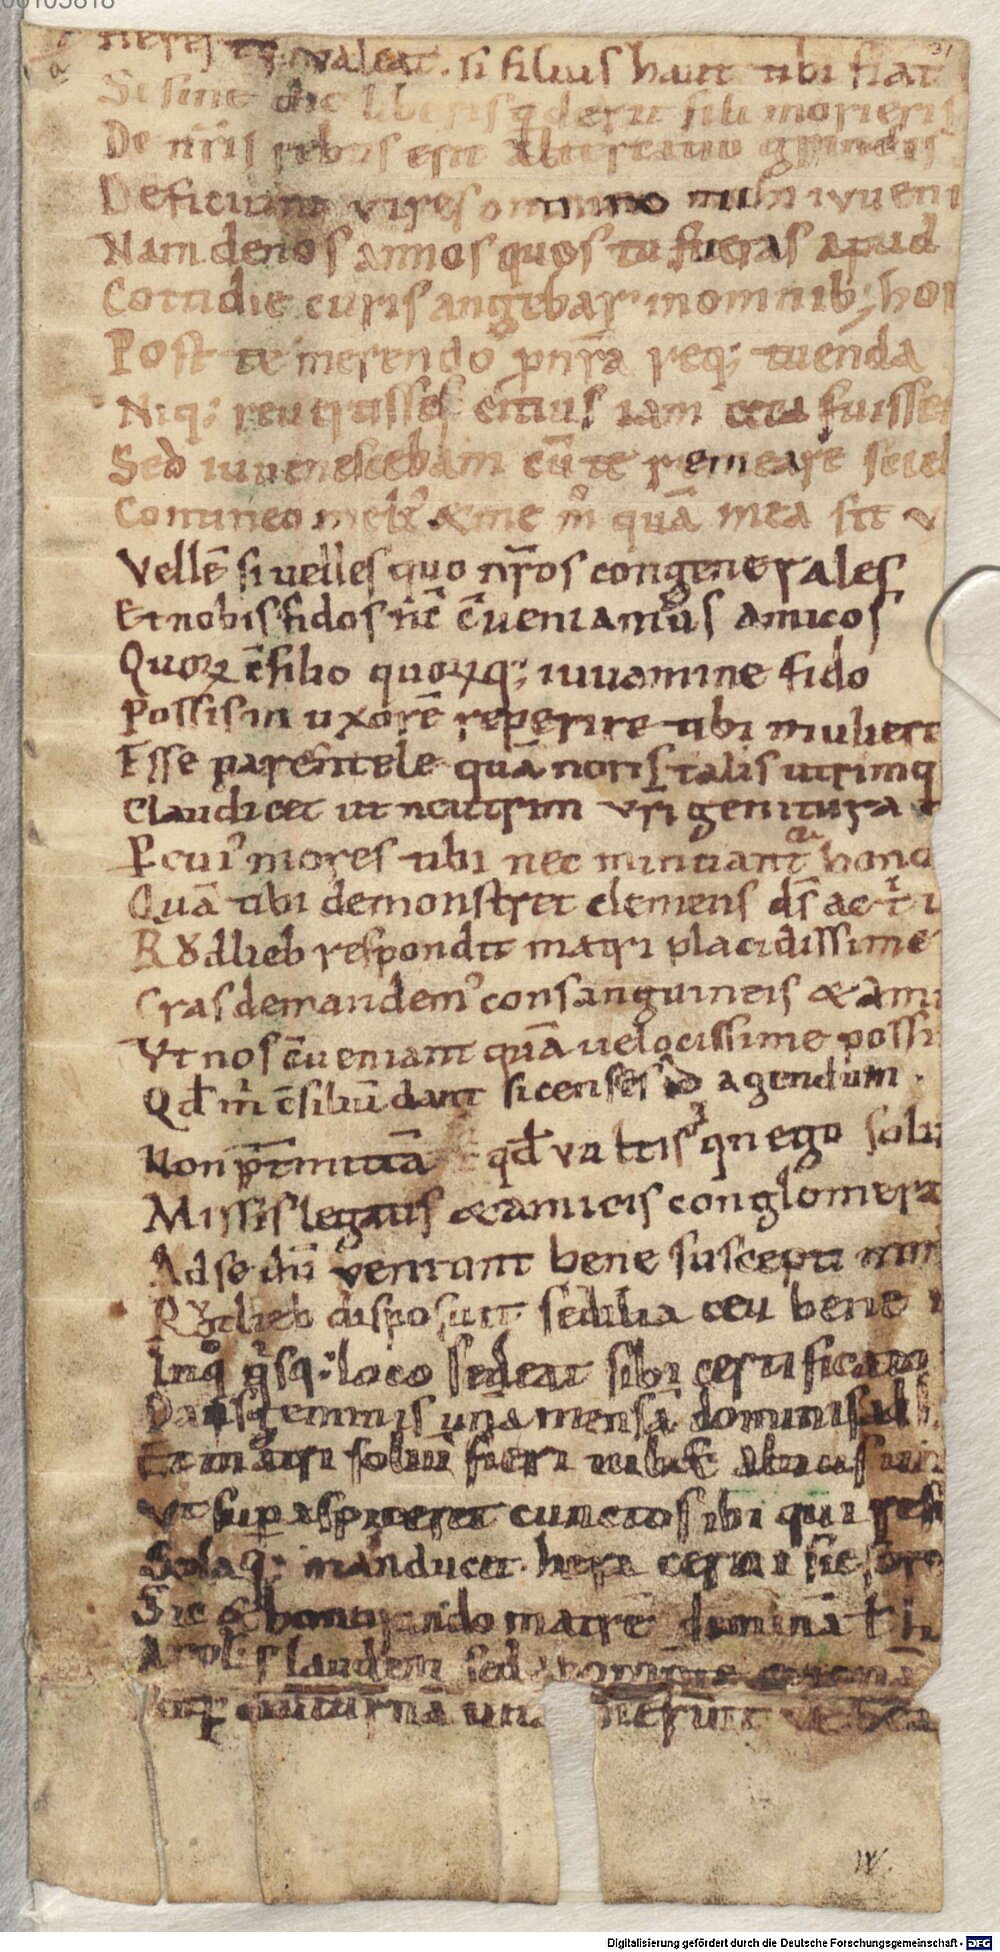 00103818
31
valeat. si filius haut tibi fiat
Si sine dic liberis q̇ derit fili morieris
De nr̄is rebus erit altercatio grandis
Deficiunt vires omnino mihi iuueni
Nam denos annos quos tu fueras apud
Cottidie curis angebar in omnib; hor
Post te merendo p nr̄a req; tuenda
Niq; reuertisses citius iam ceca fuissem
Sed iuuenescebam cū te remeare scieb
Contineo meli᷒ & me m̊ quā mea sit v
Vellē si uelles quo nr̄os congenerales
Et nobis fidos nc̄ c̄ueniamus amicos
Quoꝝ c̄silio quoꝝq; iuuamine fido
Possis in uxorē reperire tibi muliere
Esse parentele quā noris talis utrimq
Claudicet ut neutrim vr̄i genitura
P cui᷒ mores tibi nec minuant᷑ hono
Quā tibi demonstret clemens ds̄ ac t
Rǒdlieb respondit matri placidissime
Cras demandem᷒ consanguineis & ami
Vt nos c̄ueniant quā uelocissime possi
Qd̄ m̊ c̄siliū dant si censes id agendum.
Non p̄tmittā qd̄ vultis quin ego solu
Missis legatis & amicis conglomera
Ad se dū̄ veniunt bene suscepti
Rǒdlieb disposuit sedilia ceu bene
In q̊ q̇sq; loco sedeat sibi certificato
Dans gemmis unā mensā dominis ad
Et matri soliū fieri iubet altius
Vt sup aspiceret cunctos ibi qui resi
Solaq; manducet. hera cerni sic
Sic honorando matrē dominā
A populis laudem sed
Atq; diuturnā
IV.
Digitalisierung gefördert durch die Deutsche Forschungsgemeinschaft - DFG